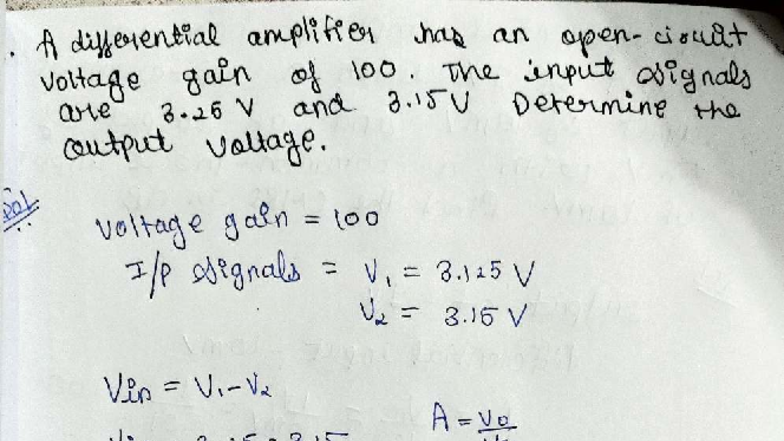 A differential amplifier has an open-circuit
voltage gain of 100. The input signals
are 3.25 V and 3.15 V Determine the
output voltage.
Sol
voltage gain = 100
I/p signals = V₁ = 3.125 V
V₂ = 3.15 V
Vin = V₁-V₂
A = Vo